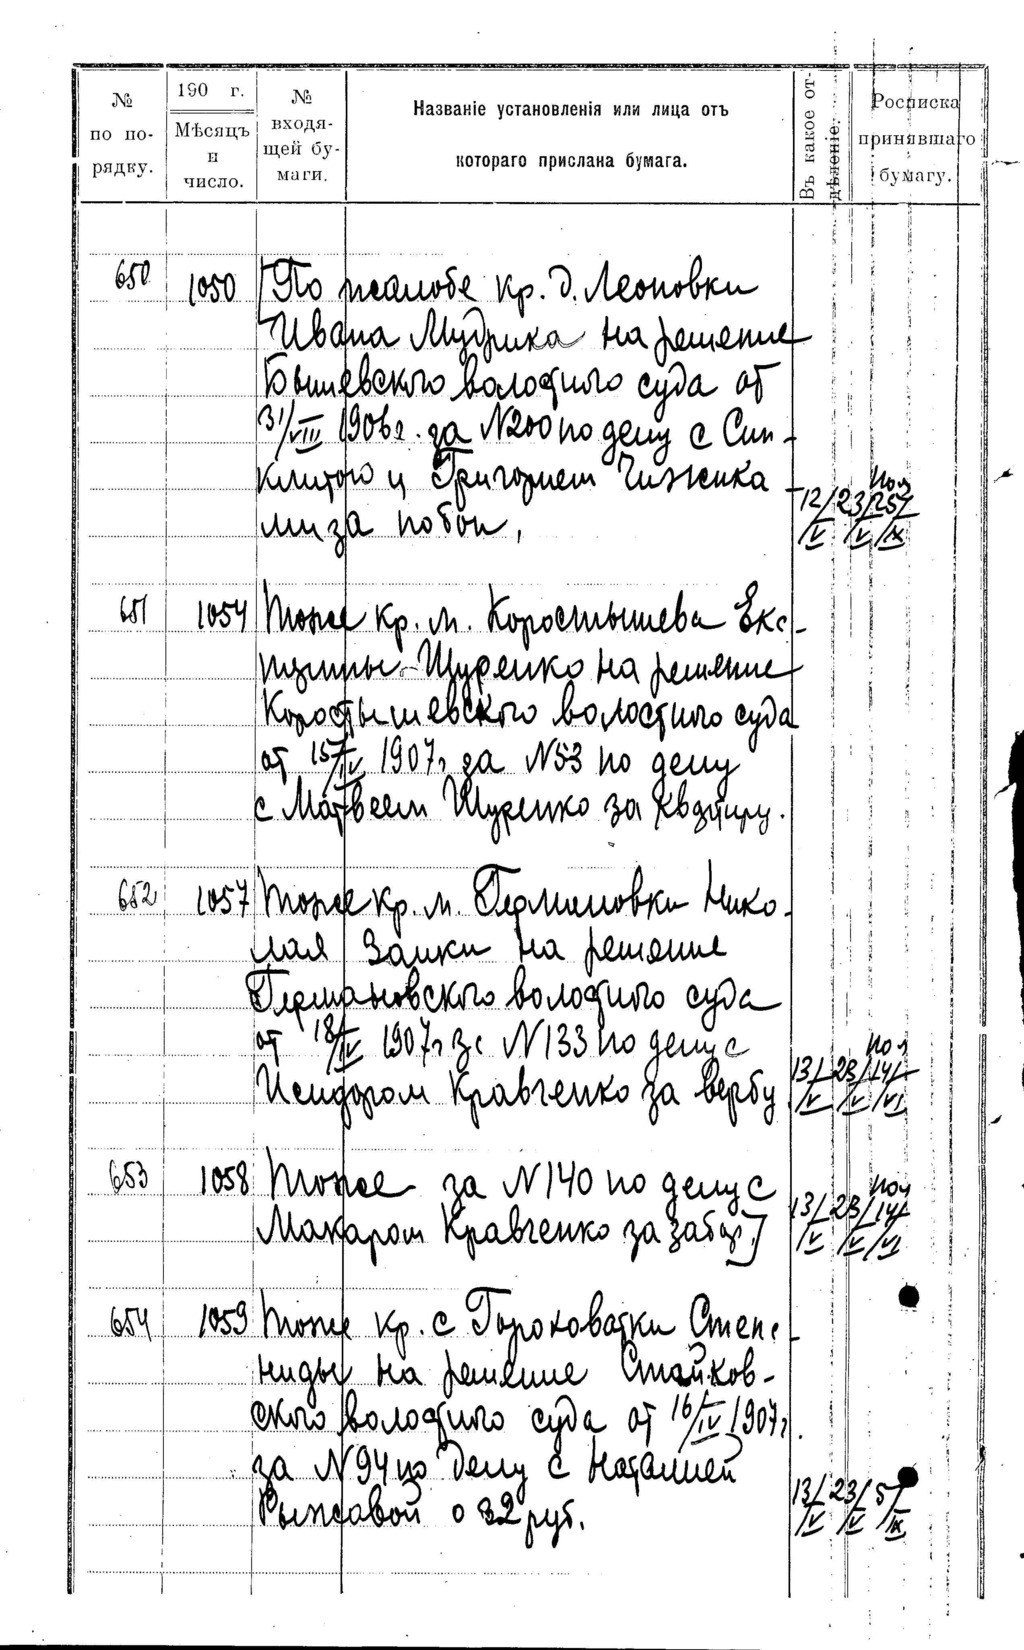 № по порядку.
190 г.
Мѣсяцъ и число.
№ входящей бумаги.
Названіе установленія или лица отъ котораго прислана бумага.
Въ какое отдѣленіе.
Росписка принявшаго бумагу.
650 1050 По жалобе кр. д. Леоновки
Ивана Мудрика на решение
Бышевского волостного суда от
31/VIII 1906 г. за N200 по делу с Син-
клитою и Григорием Чижика
ми за побои,
12/V 23/V 25/IX
651 1054 Тоже кр. м. Коростышева
Щуренко на решение
Коростышевского волостного суда
от 15/IV 1907 г за N53 по делу
с Матвеем Щуренко за квартиру.
652 1057 Тоже кр. м. Германовки Нико-
лая Заики на решение
Германовского волостного суда
от 18/IV 1907 г за N133 по делу с
Исидором Кравченко за вербу
13/V 23/V 14/VI
653 1058 Тоже за N140 по делу с
Макаром Кравченко за забор.]
13/V 23/V 14/VI
654 1059 Тоже кр. с Гороховатки Степа-
ниды на решение Стайков-
ского волостного суда от 16/IV 1907 г.
за N94 по делу с Наталией
Рыжавой о 32 руб.
13/V 23/V 5/IX